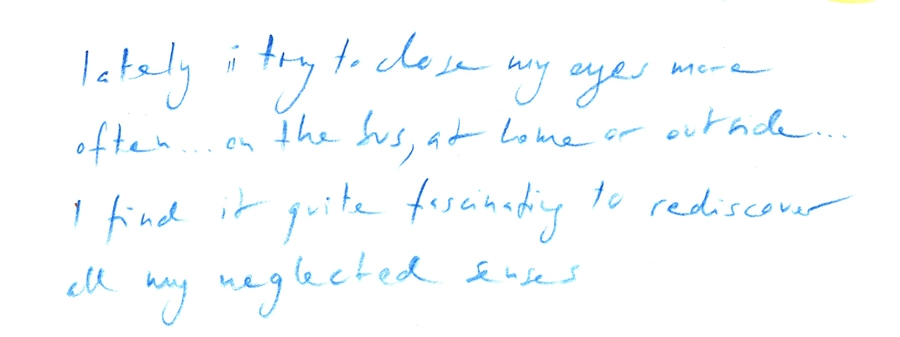 lately i try to close my eyes more
often... on the bus, at home or outside...
I find it quite fascinating to rediscover
all my neglected senses